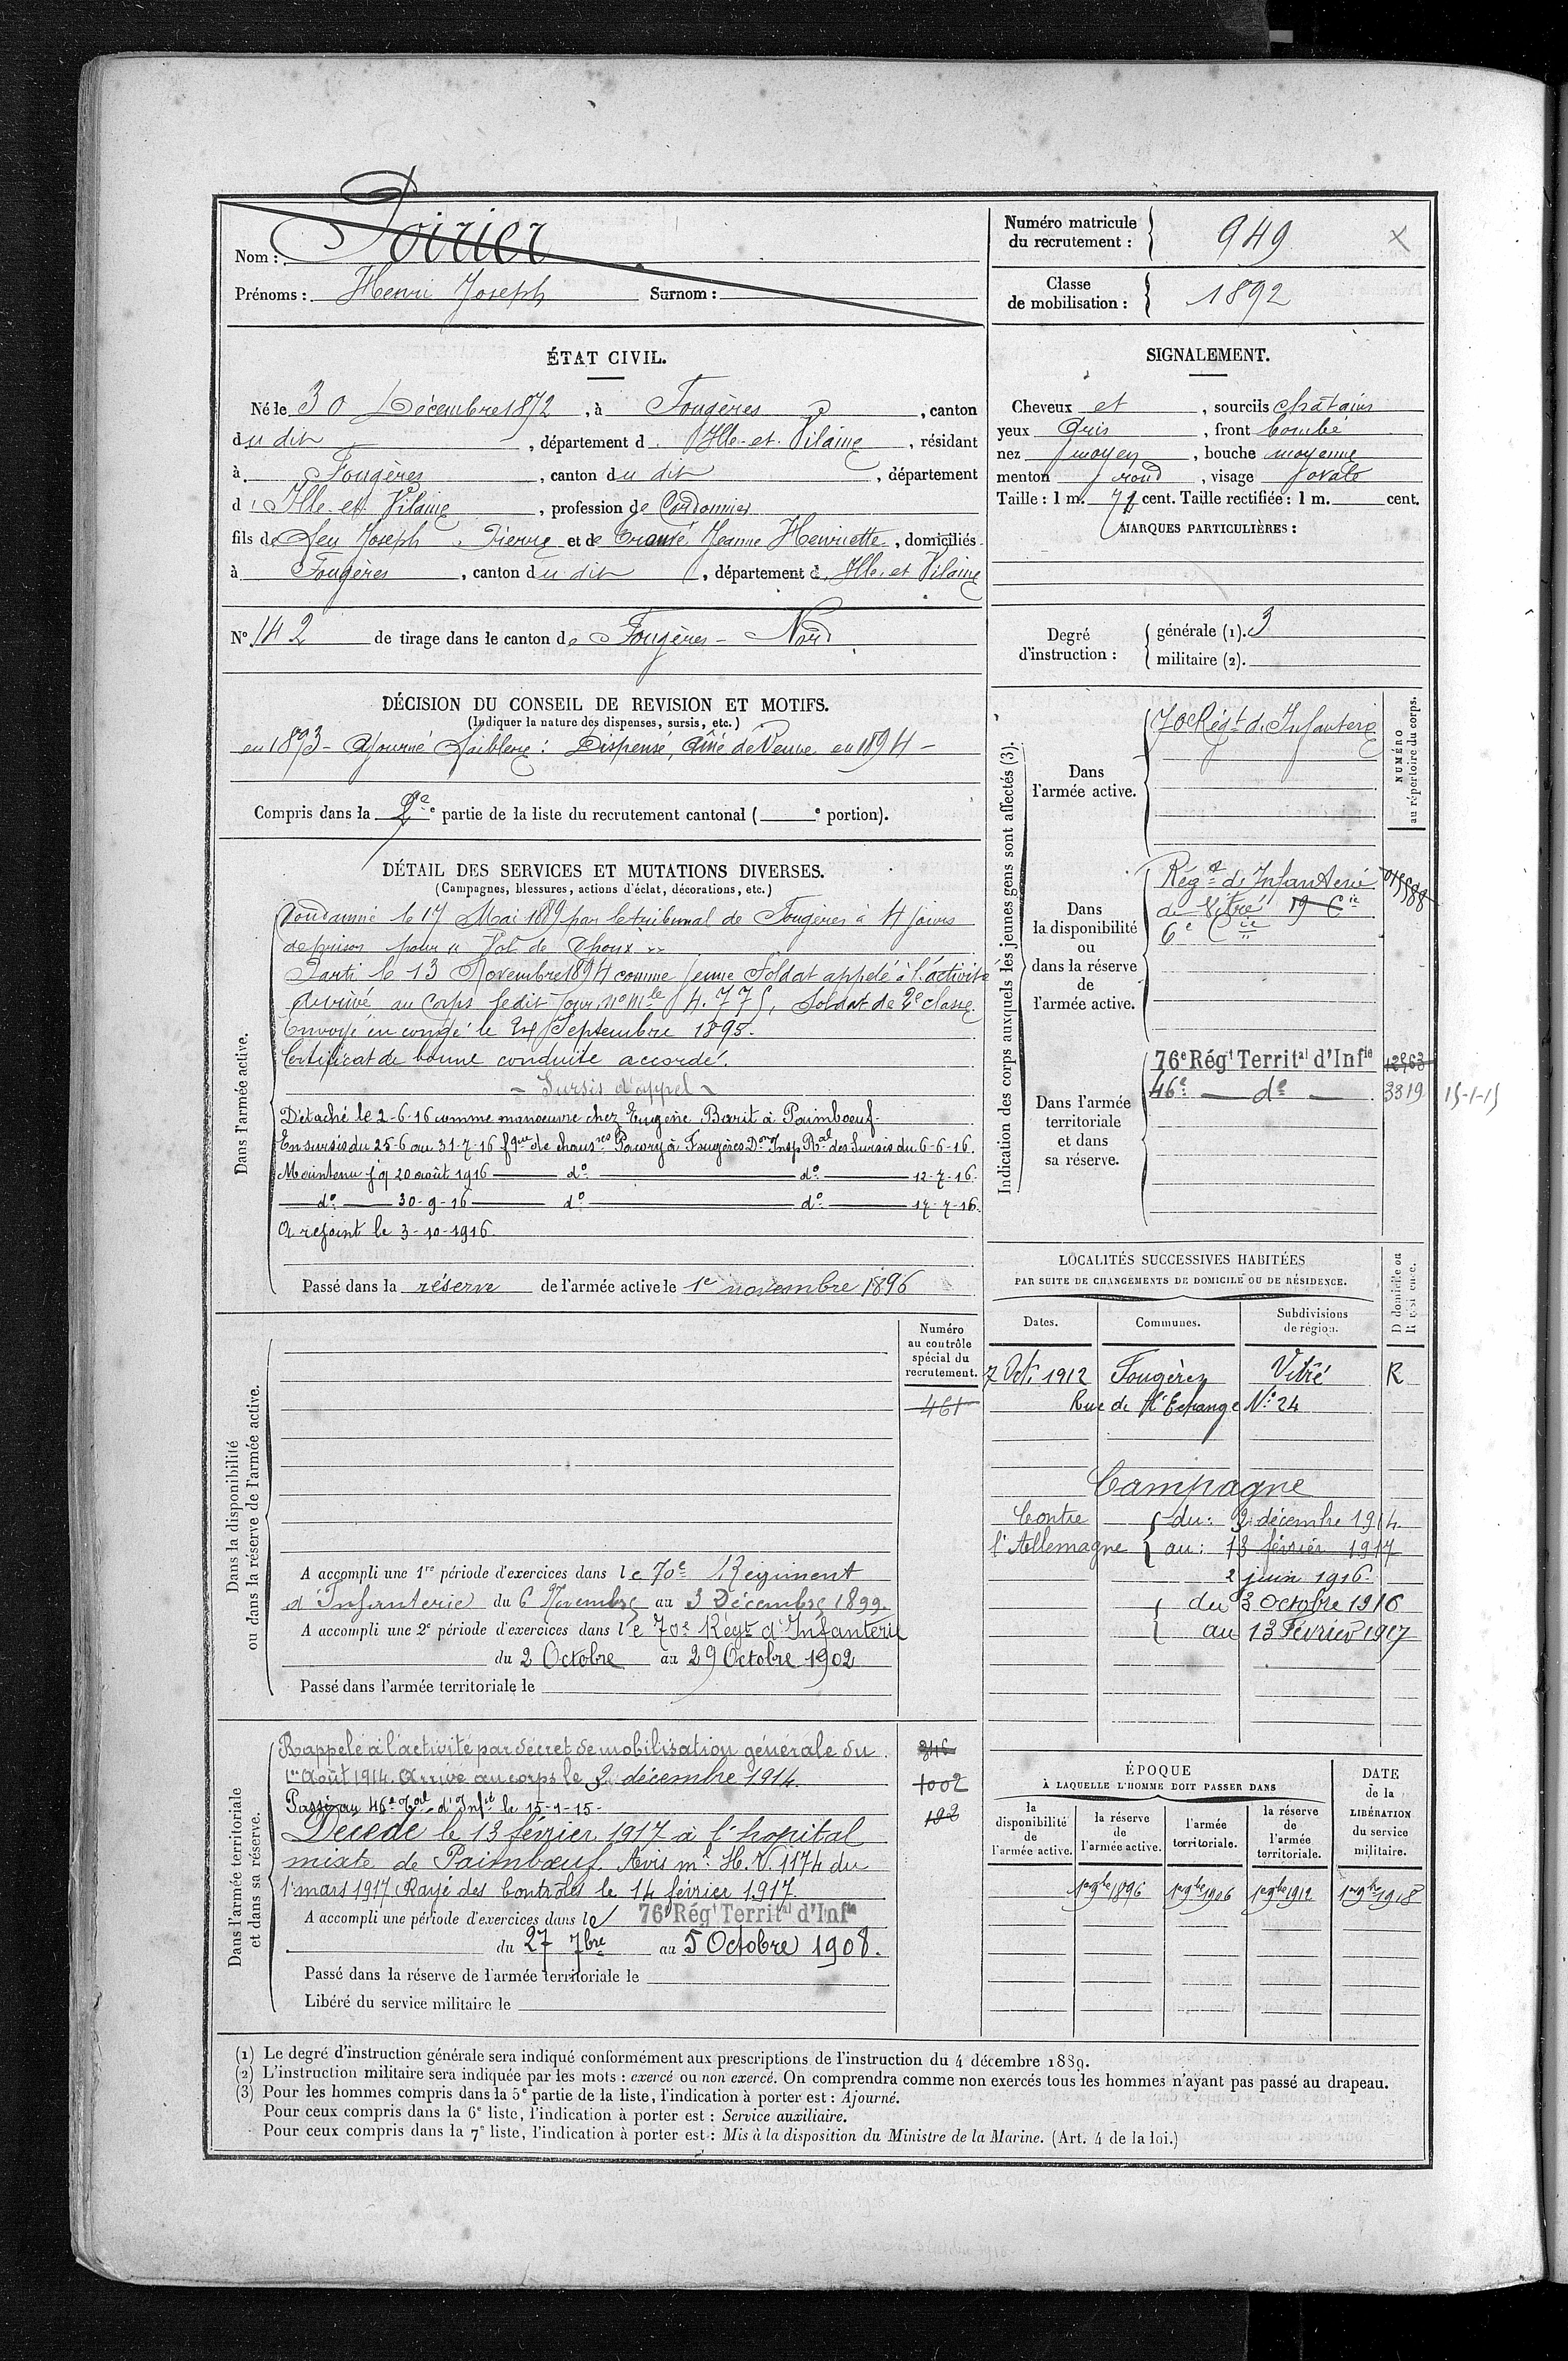 Nom : Poirier
Prénoms : Henri Joseph Surnom :
Numéro matricule du recrutement : 949
Classe de mobilisation : 1892
ÉTAT CIVIL.
Né le 30 Décembre 1872, à Fougères, canton
du dit, département d'Ille-et-Vilaine, résidant
à Fougères, canton du dit, département
d'Ille-et-Vilaine, profession de Cordonnier
fils de feu Joseph Pierre et de Jeanne Henriette, domiciliés
à Fougères, canton du dit, département d'Ille-et-Vilaine
N° 142 de tirage dans le canton de Fougères-Nord
DÉCISION DU CONSEIL DE REVISION ET MOTIFS.
(Indiquer la nature des dispenses, sursis, etc.)
en 1893 - Ajourné faiblesse : Dispensé, aîné de Veuve en 1894 -
Compris dans la 2e partie de la liste du recrutement cantonal ( e portion).
DÉTAIL DES SERVICES ET MUTATIONS DIVERSES.
(Campagnes, blessures, actions d'éclat, décorations, etc.)
Dans l'armée active.
Condamné le 17 Mai 1889 par le tribunal de Fougères à 4 jours
de prison pour " Vol de Choux "
Parti le 13 Novembre 1894 comme jeune Soldat appelé à l'activité
Arrivé au Corps le dit jour, n° mle 4.775, Soldat de 2e classe.
Envoyé en congé le 24 Septembre 1895.
Certificat de bonne conduite accordé.
- Sursis d'appel -
Détaché le 2-6-16 comme manoeuvre chez Eugène Barit à Paimboeuf.
En sursis du 25-6 au 31-7-16 fque de chausres Pacory à Fougères Don Insp Ral des Sursis du 6-6-16.
Maintenu jq 20 août 1916 — d° — d° — 12-7-16.
— d° — 30-9-16 — d° — d° — 17-7-16.
A rejoint le 3-10-1916.
Passé dans la réserve de l'armée active le 1er novembre 1896
Dans la disponibilité ou dans la réserve de l'armée active.
Numéro au contrôle spécial du recrutement.
461
A accompli une 1re période d'exercices dans le 70e Régiment
d'Infanterie du 6 Novembre au 3 Décembre 1899.
A accompli une 2e période d'exercices dans le 70e Régt d'Infanterie
du 2 Octobre au 29 Octobre 1902
Passé dans l'armée territoriale le
Dans l'armée territoriale et dans sa réserve.
Rappelé à l'activité par décret de mobilisation générale du
1er Août 1914. Arrivé au corps le 2 décembre 1914.
Passé au 46e Tal d'Infie le 15-1-15-
Décédé le 13 février 1917 à l'hopital
mixte de Paimboeuf. Avis ml H.V. 1174 du
1er mars 1917 Rayé des Contrôles le 14 février 1917.
346
1002
A accompli une période d'exercices dans le 76e Régt Territal d'Infie
du 27 7bre au 5 Octobre 1908.
Passé dans la réserve de l'armée territoriale le
Libéré du service militaire le
SIGNALEMENT.
Cheveux et, sourcils chatains
yeux Gris, front bombé
nez moyen, bouche moyenne
menton rond, visage ovale
Taille : 1 m. 71 cent. Taille rectifiée : 1 m. cent.
MARQUES PARTICULIÈRES :
Degré d'instruction : générale (1). 3
militaire (2).
Indication des corps auxquels les jeunes gens sont affectés (3).
NUMÉRO au répertoire du corps.
Dans l'armée active.
70e Régt d'Infanterie
Dans la disponibilité ou dans la réserve de l'armée active.
Régt d'Infanterie
de Vitré 19 Cie
6e Cie
Dans l'armée territoriale et dans sa réserve.
76e Régt Territal d'Infie
46e — d° — 3319 15-1-15
LOCALITÉS SUCCESSIVES HABITÉES
PAR SUITE DE CHANGEMENTS DE DOMICILE OU DE RÉSIDENCE.
Dates. Communes. Subdivisions de région. D domicile ou R résidence.
7 Oct. 1912 Fougères Vitré R
Rue de l'Echange N° 24
Campagne
Contre l'Allemagne { du : 2 décembre 1914
au : 13 février 1917
2 juin 1916
{ du 3 Octobre 1916
au 13 Février 1917
ÉPOQUE
À LAQUELLE L'HOMME DOIT PASSER DANS
la disponibilité de l'armée active. la réserve de l'armée active. l'armée territoriale. la réserve de l'armée territoriale.
DATE de la LIBÉRATION du service militaire.
1er 9bre 1896 1er 9bre 1906 1er 9bre 1912 1er 9bre 1918
(1) Le degré d'instruction générale sera indiqué conformément aux prescriptions de l'instruction du 4 décembre 1889.
(2) L'instruction militaire sera indiquée par les mots : exercé ou non exercé. On comprendra comme non exercés tous les hommes n'ayant pas passé au drapeau.
(3) Pour les hommes compris dans la 5e partie de la liste, l'indication à porter est : Ajourné.
Pour ceux compris dans la 6e liste, l'indication à porter est : Service auxiliaire.
Pour ceux compris dans la 7e liste, l'indication à porter est : Mis à la disposition du Ministre de la Marine. (Art. 4 de la loi.)